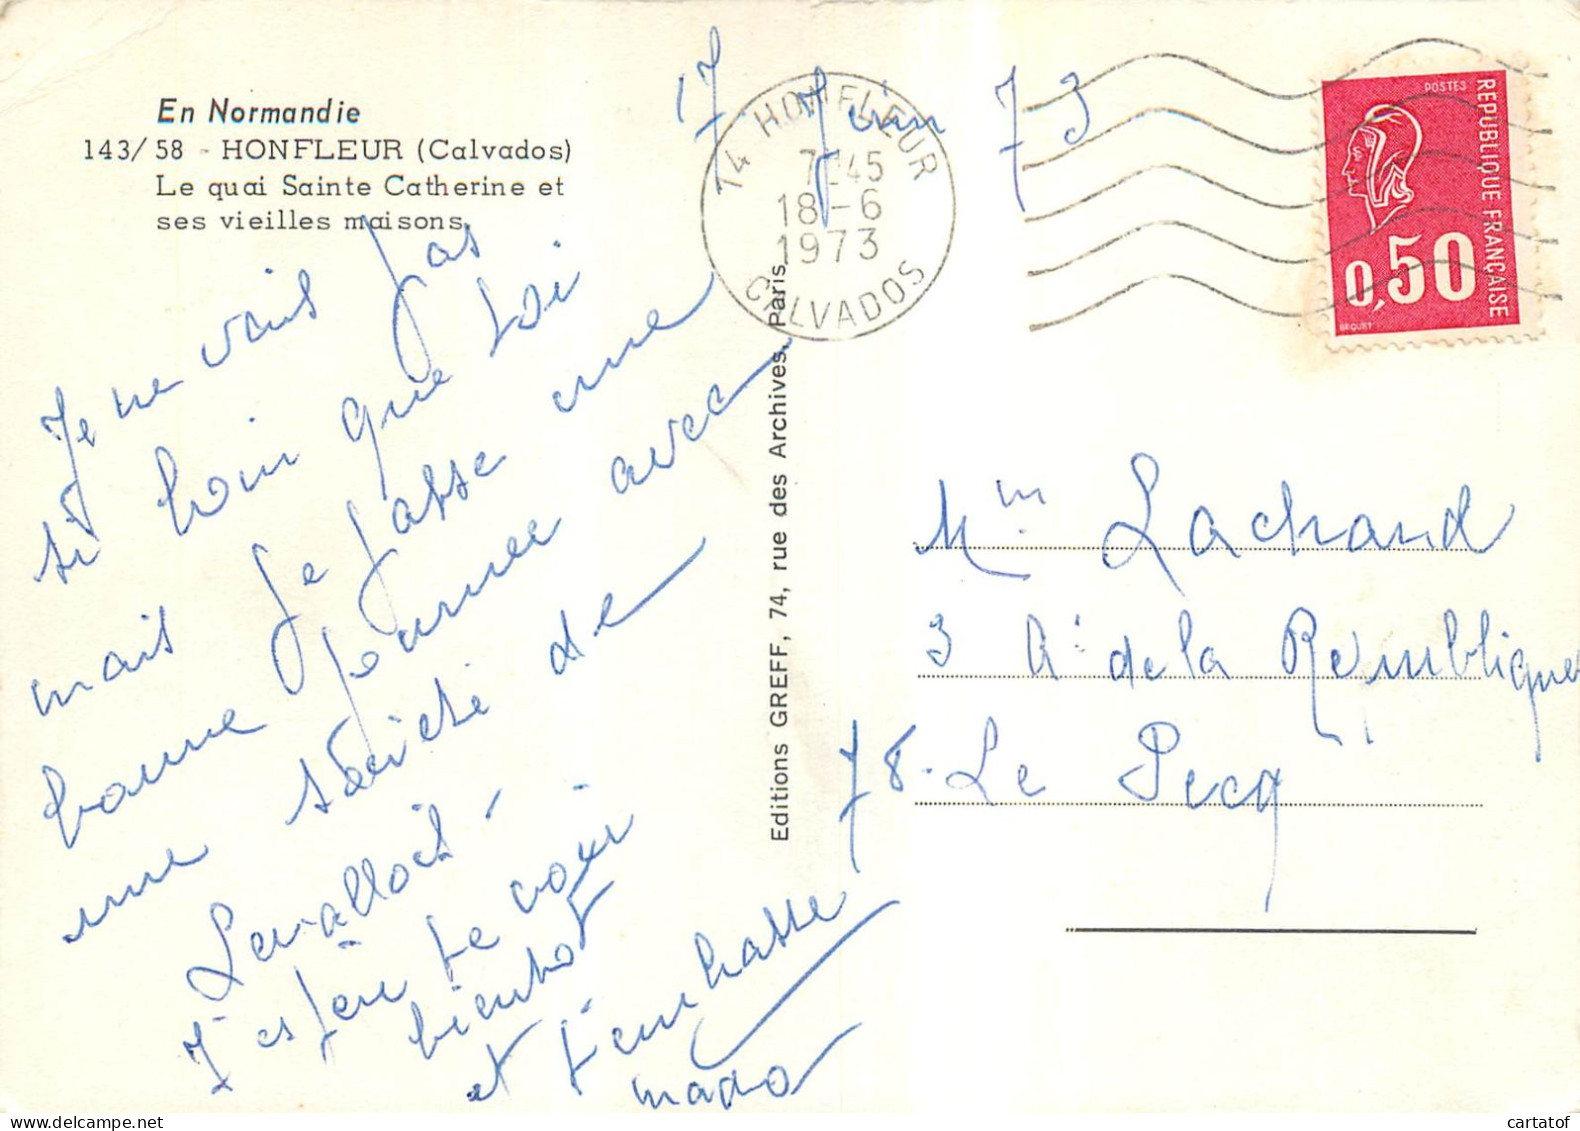 En Normandie
143/58 - HONFLEUR (Calvados)
Le quai Sainte Catherine et
ses vieilles maisons.
17 Juin 73
14 HONFLEUR
7H45
18-6
1973
CALVADOS
POSTES
REPUBLIQUE FRANÇAISE
0,50
BEQUET
Je ne vais pas
si loin que toi
mais je passe une
bonne journée avec
une société de
Levallois -
J'espère te voir
bientôt
et t'embrasse
mado
Editions GREFF, 74, rue des Archives, Paris
Mm Lachaud
3 A. de la République
78. Le Pecq
cartatof